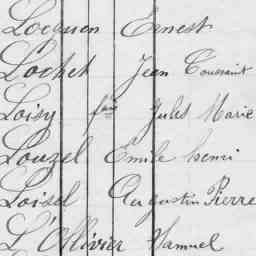 Locquen Ernest
Lochet Jean Toussaint
Loisy Jules Marie
Louzel Emile henri
Loisel Augustin Pierre
L'Ollivier Samuel